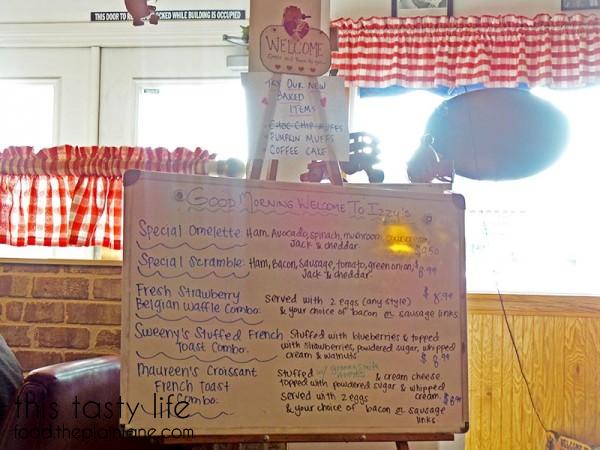 THIS DOOR TO REMAIN UNLOCKED WHILE BUILDING IS OCCUPIED
WELCOME
TRY OUR NEW
BAKED
ITEMS
- CHOC CHIP MUFFS
- PUMPKIN MUFFS
- COFFEE CAKE
GOOD MORNING WELCOME TO IZZY'S
Special Omelette: Ham, Avocado, spinach, mushroom,
Jack & cheddar
Special Scramble: Ham, Bacon, Sausage, tomato, green onion,
Jack & cheddar $8.99
Fresh Strawberry
Belgian Waffle Combo: Served with 2 eggs (any style) $8.99
& your choice of bacon or sausage links
Sweeny's Stuffed French
Toast Combo: Stuffed with blueberries & topped
with strawberries, powdered sugar, whipped
cream & walnuts $8.99
Maureen's Croissant
French Toast
Combo: Stuffed w/ & cream cheese
topped with powdered sugar & whipped
cream $8.99
served with 2 eggs
& your choice of bacon or sausage
links
this tasty life
food.theplainlane.com